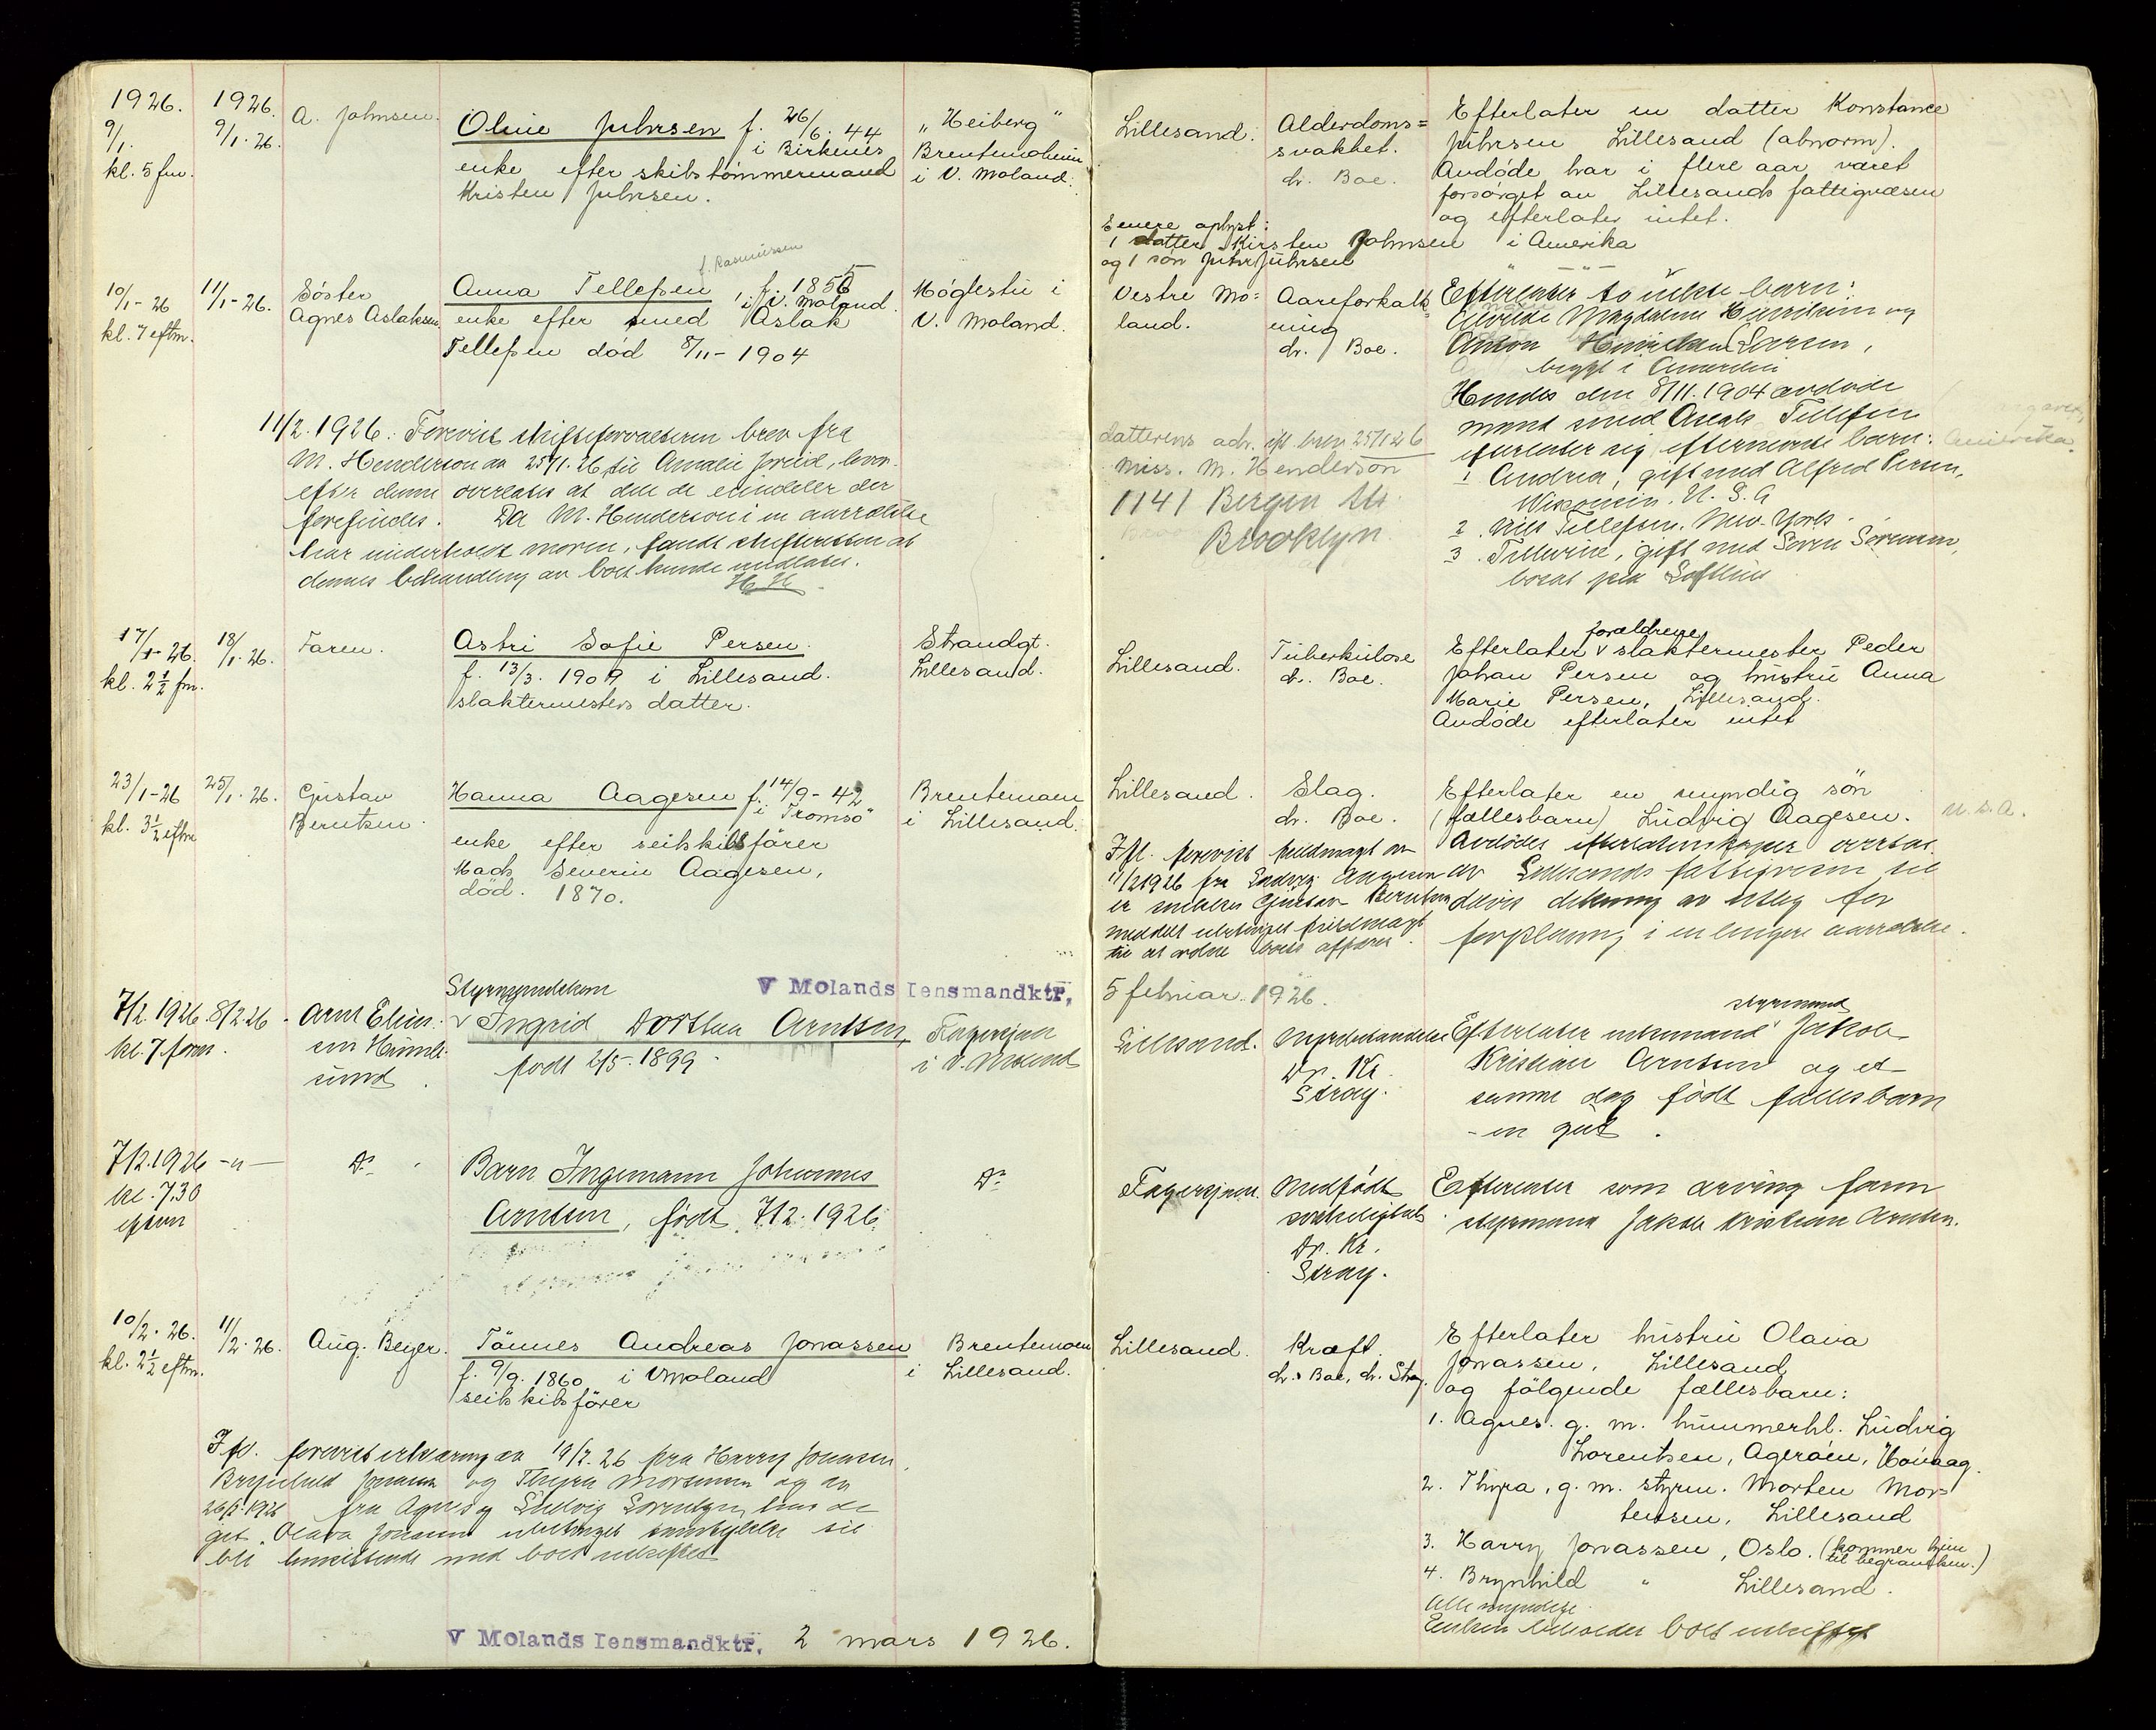 1926. 1926.
9/1. 9/1.26. A. Johnsen.
kl. 5 fm.
Oline Juhrsen f. 26/6. 44
i Birkenes
enke efter skibstømmermand
Kristen Juhrsen.
"Heiberg"
Brentemoheim
i V. Moland.
Lillesand.
Alderdoms=
svakhet.
dr. Boe.
Efterlater en datter Konstance
Juhrsen Lillesand (abnorm).
Avdøde har i flere aar været
forsørget av Lillesands fattigvæsen
og efterlater intet.
Senere oplyst:
1 datter Kirsten Johnsen i Amerika
og 1 søn Juhrsen
10/1-26 11/1-26.
kl. 7 eftm.
Søster
Agnes Aslaksen.
f. Rasmussen
Anna Tellefsen f. 1855
i V. Moland.
enke efter smed Aslak
Tellefsen død 8/11-1904
Møglestu i
V. Moland.
Vestre Mo=
land.
Aareforkalk=
ning
dr. Boe.
Efterlater to uekte barn:
Magdalene og
Anton Larsen,
bygt i Amerika
Hendes den 8/11.1904 avdøde
mand smed Tellefsen
efterlater sig efternevnte barn: Amerika.
1 Andrea, gift med Alfred
Wisconsin. U.S.A
2. Nils Tellefsen. New York.
3. gift med Søren Sørensen,
bosat paa
datterens adr. ifl. brev 25/1 26
Miss. M. Henderson
1141 Bergen Str.
Brooklyn.
11/2.1926. Forevist skifteforvalteren brev fra
M. Henderson av 25/1.26 til Amalie
efter denne overlates at dele de eiendeler der
forefindes. Da M. Henderson i en aarrække
har underholdt moren, fandt skifteretten at
dennes behandling av boet kunde undlates.
H H
17/1-26. 18/1.26. Faren.
kl. 2½ fm.
Astri Sofie Persen.
f. 13/3. 1909 i Lillesand.
slaktermesters datter.
Strandgt.
Lillesand.
Lillesand.
Tuberkulose
dr. Boe.
forældrene
Efterlater v slaktermester Peder
Johan Persen og hustru Anna
Marie Persen, Lillesand.
Avdøde efterlater intet
23/1-26 25/1.26.
kl. 3½ eftm
Gustav
Berntsen.
Hanna Aagesen f. 14/9-42
i Tromsø
enke efter seilskibsfører
Mads Severin Aagesen,
død. 1870.
Brentemoen
i Lillesand.
Lillesand.
Slag.
dr. Boe.
Efterlater en myndig søn
(fællesbarn) Ludvig Aagesen. U.S.A.
Avdødes efterladenskaper overtas
av Lillesands fattigvesen til
delvis dekning av utlæg for
forpleining i en længere aarrække.
Ifl. forevist fuldmagt av
11/2 1926 fra Ludvig Aagesen
er Gustav Berntsen
meddelt ubetinget fuldmagt
til at ordne boets affærer.
V Molands lensmandktr, 5 februar 1926.
7/2.1926. 8/2.26.
kl. 7 form.
Arnt
Styrmandskone
v Ingrid Dorthea Arntsen,
født 2/5.1899.
Fagersjøen
i V. Moland
Lillesand.
Dr. Kr.
Stray.
styrmand
Efterlater enkemand Jakob
Kristian Arntsen og et
samme dag født fællesbarn
- en gut.
7/2.1926 -"-
kl. 7.30
eftm
Do
Barn Ingemann Johannes
Arntsen, født 7/2.1926
Do
Fagersjøen.
Medfødt
svakelighet
Dr. Kr.
Stray.
Efterlater som arving faren
styrmand Jakob Kristian Arntsen.
10/2.26. 11/2.26.
kl. 2½ eftm.
Aug. Beyer.
Tønnes Andreas Jonassen
f. 9/9. 1860 i V Moland
seilskibsfører
Brentemoen
i Lillesand.
Lillesand.
Kræft.
dr. Boe, dr. Stray.
Efterlater hustru Olava
Jonassen, Lillesand
og følgende fællesbarn:
1. Agnes. g. m. hummerhl. Ludvig
Lorentsen, Agerøen, Høivaag.
2. Thyra, g. m. styrm. Morten Mor=
tensen, Lillesand
3. Harry Jonassen, Oslo. (kommer hjem
til begravelsen.)
4. Brynhild " Lillesand.
Alle myndige.
Enken beholder boet uskiftet
Ifl. forevist erklæring av 19/2.26 fra Harry Jonassen,
Brynhild Jonassen og Thyra Mortensen og av
26/2.1926 fra Agnes og Ludvig Lorentzen, har de
git Olava Jonassen ubetinget samtykke til
bli hensittende med boet uskiftet
V Molands lensmandktr, 2 mars 1926.